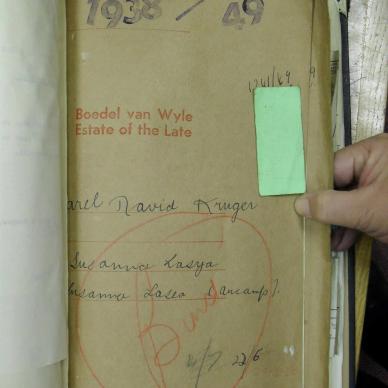 1938 / 49
1241/49 9
Boedel van Wyle
Estate of the Late
arel David Kruger
Susanna Lasya
usanna Lasea (ancamp).
22/6